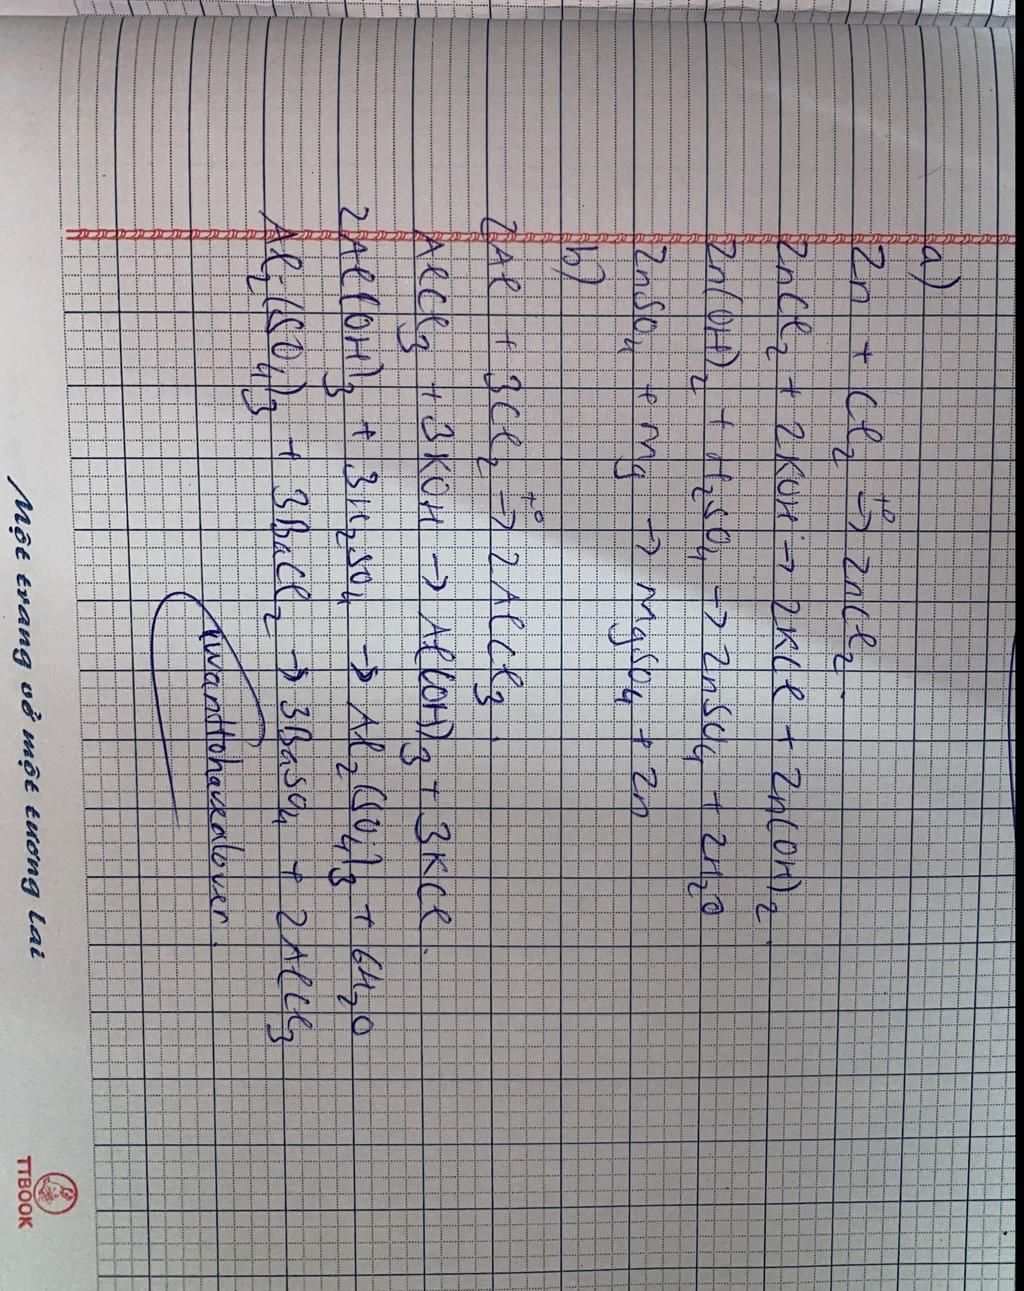 a)
Zn + Cl₂ →t° ZnCl₂.
ZnCl₂ + 2KOH → 2KCl + Zn(OH)₂.
Zn(OH)₂ + H₂SO₄ → ZnSO₄ + 2H₂O
ZnSO₄ + Mg → MgSO₄ + Zn
b)
2Al + 3Cl₂ →t° 2AlCl₃.
AlCl₃ + 3KOH → Al(OH)₃ + 3KCl.
2Al(OH)₃ + 3H₂SO₄ → Al₂(SO₄)₃ + 6H₂O
Al₂(SO₄)₃ + 3BaCl₂ → 3BaSO₄ + 2AlCl₃
iwanttohavealover.
Một trang vở một tương lai
TTBOOK